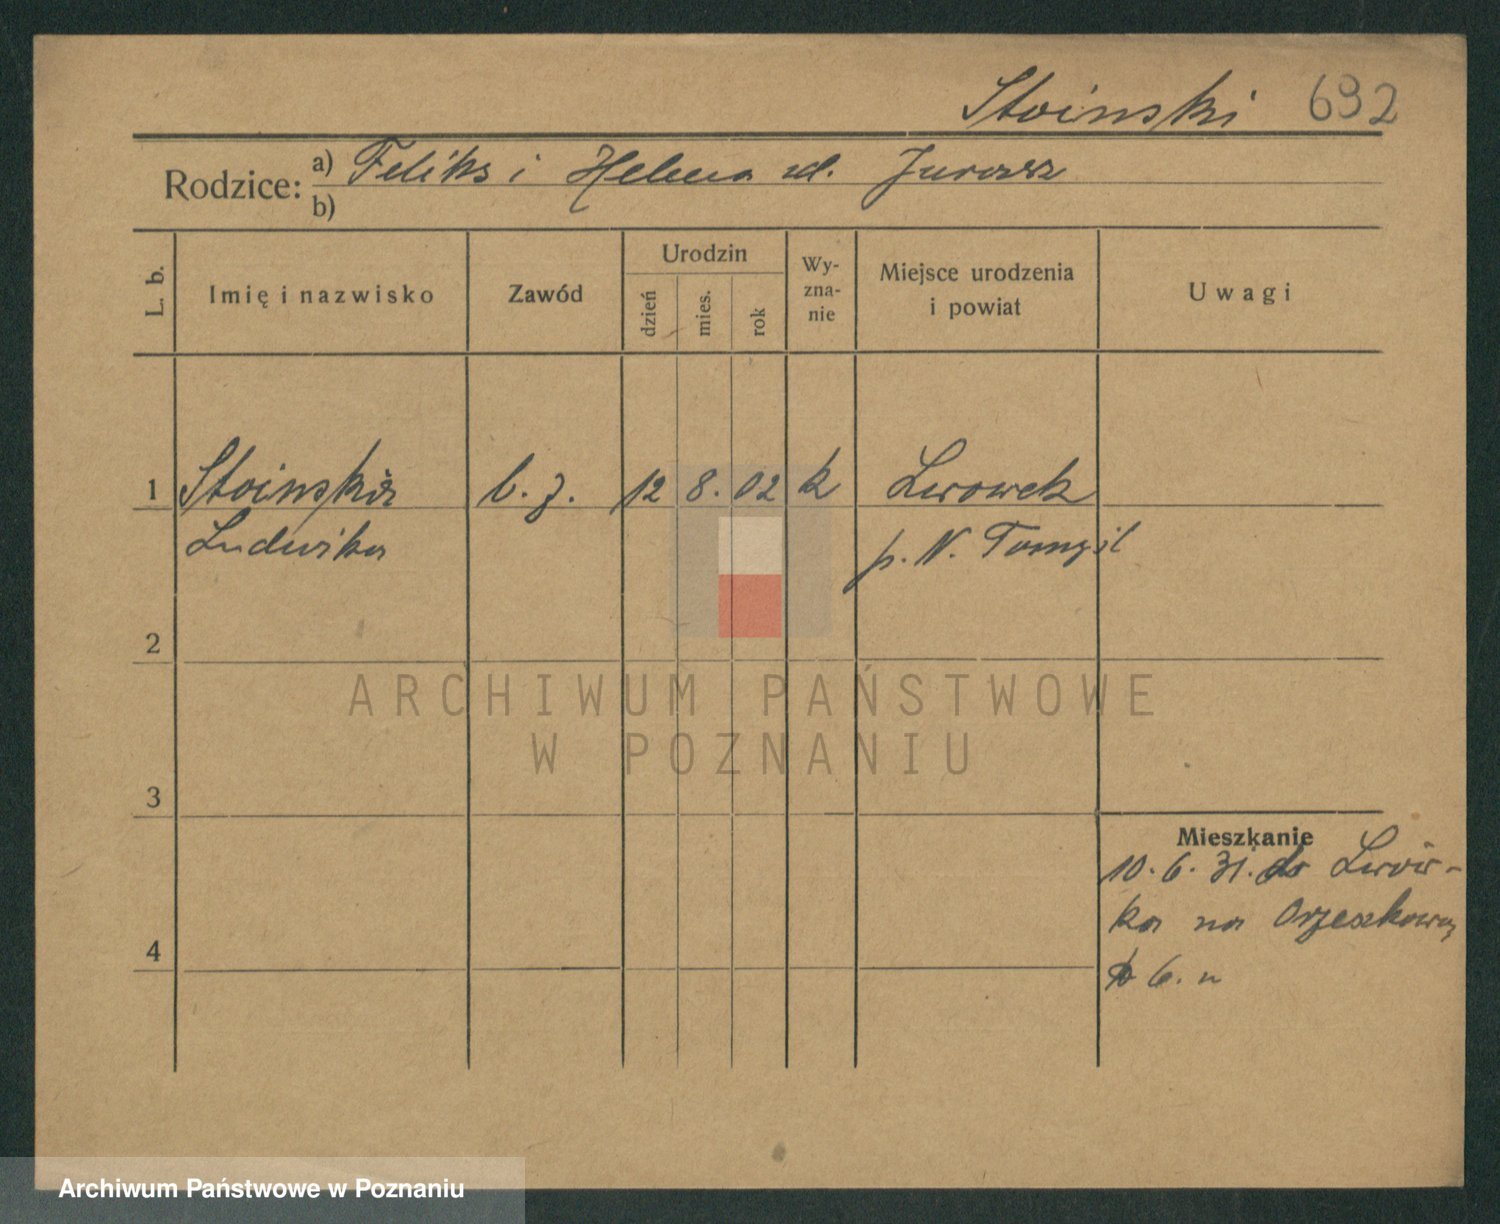 Stoinski 692
Rodzice: a) Feliks i Helena zd. Jurossz
b)
L. b.
Imię i nazwisko
Zawód
Urodzin
dzień
mies.
rok
Wy-
zna-
nie
Miejsce urodzenia
i powiat
Uwagi
1 Stoinska b. z. 12 8. 02 k Lwowek
Ludwika p. N. Tomysl
2
3
4
Mieszkanie
10. 6. 31. do Lwów-
ka na Orzeszkowej
6.
ARCHIWUM PAŃSTWOWE
W POZNANIU
Archiwum Państwowe w Poznaniu